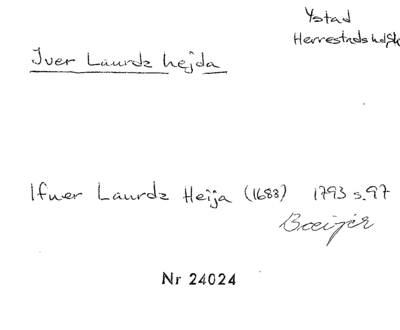 Ystad
Herrestads hd
Iver Laurdz hejda
Ifwer Laurdz Heija (1688) 1793 s. 97
Nr 24024